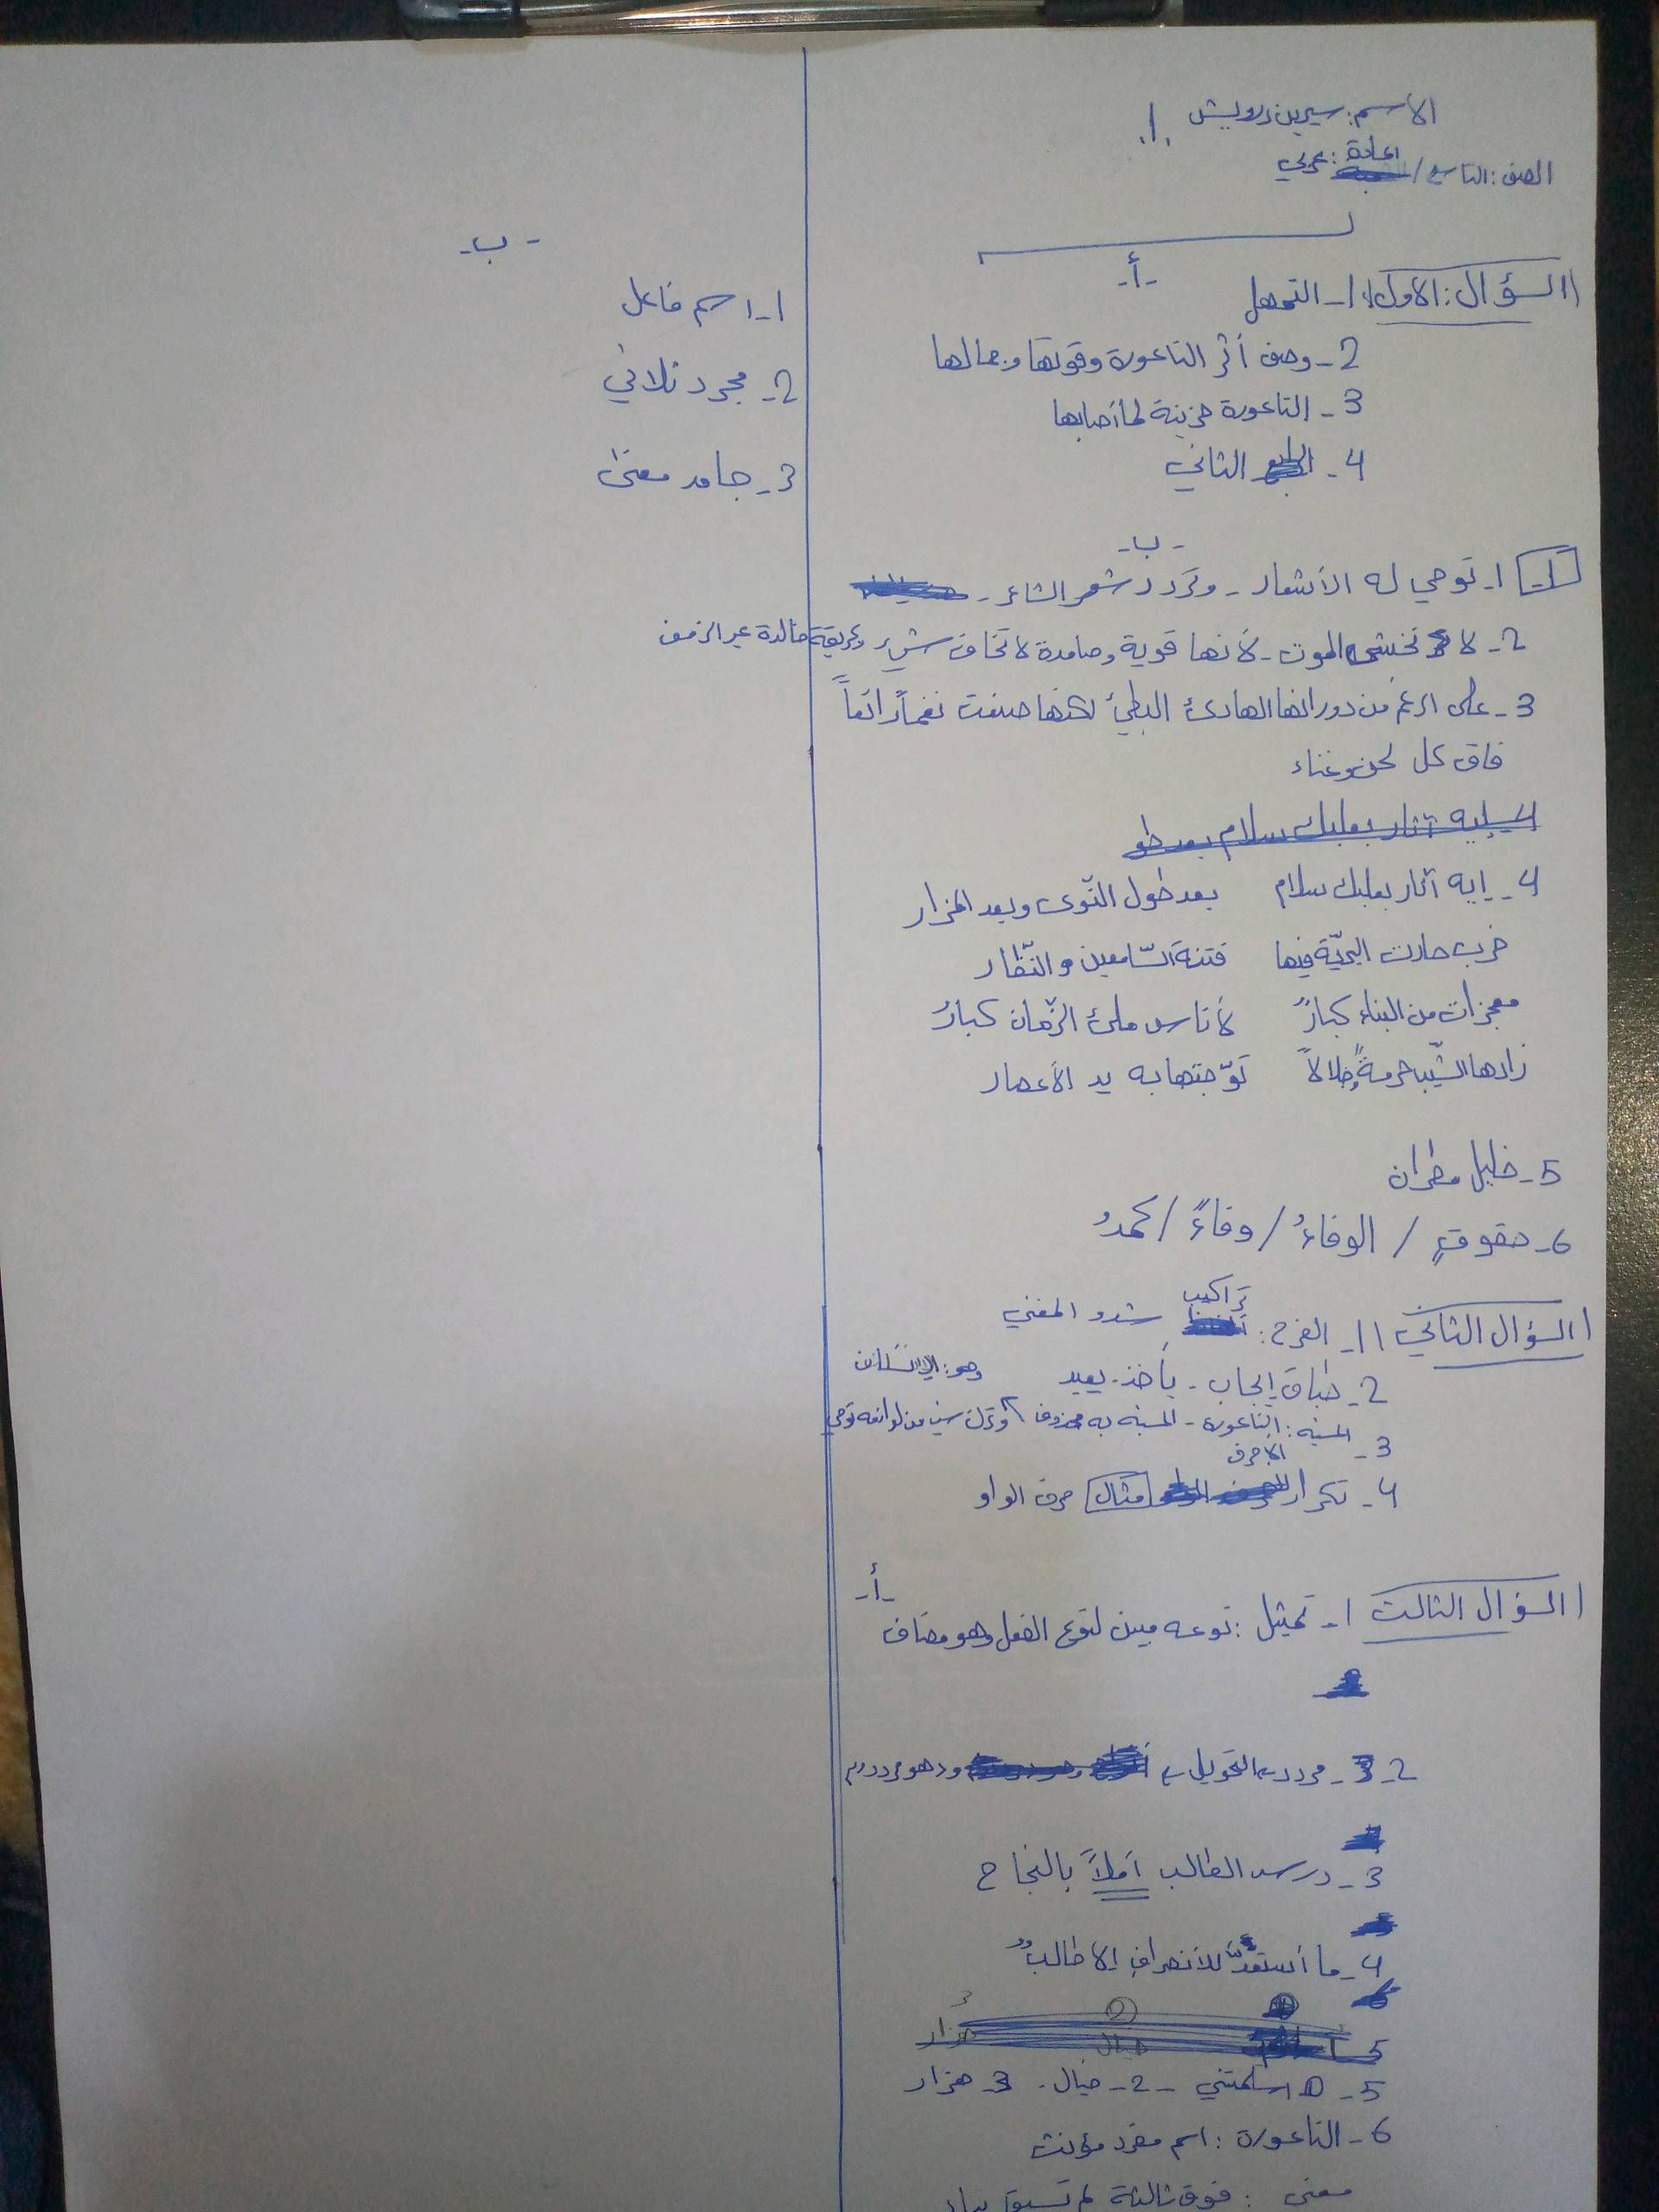 الاسم: سيرين درويش
الصف: التاسع / اعادة: عربي
-أ-
السؤال الأول: 1- التمهل
2- وصف أثر الناعورة وقوتها وجمالها
3- الناعورة حزينة لما أصابها
4- الثاني
-ب-
1- توحي له الأشعار - وتردد شعر الشاعر -
2- لا تخشى الموت - لأنها قوية وصامدة لا تخاف شيء وعريقة خالدة عبر الزمن
3- على الرغم من دورانها الهادئ البطيئ لكنها صنعت نغماً رائعاً
فاق كل لحن وغناء
4- إيه آثار بعلبك سلام بعد طول النّوى وبعد المزار
خرب حارت البريّة فيها فتنة السّامعين و النّظار
معجزات من البناء كبارٌ لأناس ملئ الزّمان كبارُ
زادها الشّيب حرمةً وجلالاً توّجتها به يد الأعصار
5- خليل مطران
6- حقوقٍ / الوفاءُ / وفاءً / كحمدُ
السؤال الثاني 1- الفرح: تراكيب شدو المغني
2- طباق إيجاب - يأخذ - يعيد
3- المشبه: الناعورة - المشبه به محذوف وهو: الإنسان وترك شيء من لوازمه توحي
4- تكرار الأحرف مثال حرف الواو
-أ-
السؤال الثالث 1- تمثيل: نوعه مبين لنوع الفعل وهو مضاف
2-
3- درس الطالب أملاً بالنجاح
4- ما أستعدَّ للأنصرافِ إلا طالبٌ
5- 1 اسلمتني - 2- خيال - 3- هزار
6- الناعورة: اسم مفرد مؤنث
معنى: فوق ثالثة لم تسبق بياء
-ب-
1- اسم فاعل
2- مجرد ثلاثي
3- جامد معنى